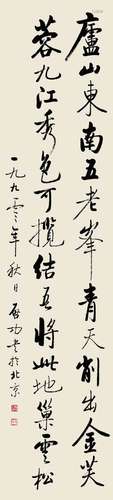 廬山東南五老峯青天削出金芙
蓉九江秀色可攬結吾將此地巢雲松
一九九零年秋日啓功書於北京